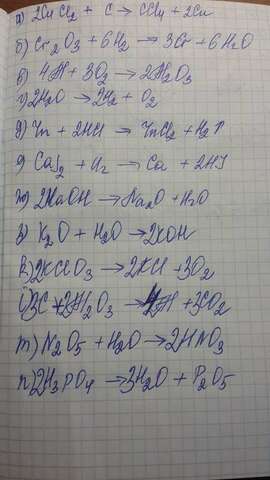 а) 2CuCl₂ + C → CCl₄ + 2Cu
б) Cr₂O₃ + 6H₂ → 3Cr + 6H₂O
в) 4Al + 3O₂ → 2Al₂O₃
г) 2H₂O → 2H₂ + O₂
д) Zn + 2HCl → ZnCl₂ + H₂↑
е) CaI₂ + H₂ → Ca + 2HI
ж) 2NaOH → Na₂O + H₂O
з) K₂O + H₂O → 2KOH
к) 2KClO₃ → 2KCl + 3O₂
3C + 2Al₂O₃ → 4Al + 3CO₂
m) N₂O₅ + H₂O → 2HNO₃
n) 2H₃PO₄ → 3H₂O + P₂O₅